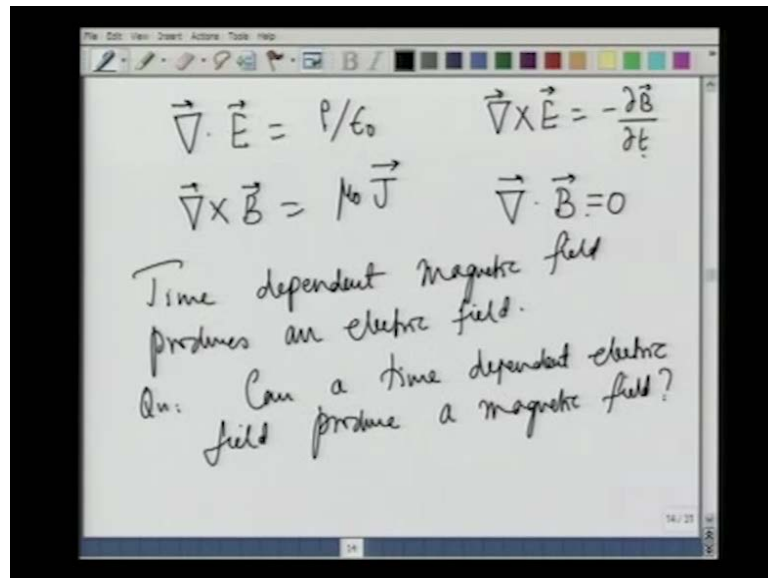 File Edit View Insert Actions Tools Help
B I
∇⃗ · E⃗ = ρ/ε₀ ∇⃗ × E⃗ = -∂B⃗/∂t
∇⃗ × B⃗ = μ₀ J⃗ ∇⃗ · B⃗ = 0
Time dependent magnetic field
produces an electric field.
Qn: Can a time dependent electric
field produce a magnetic field?
14